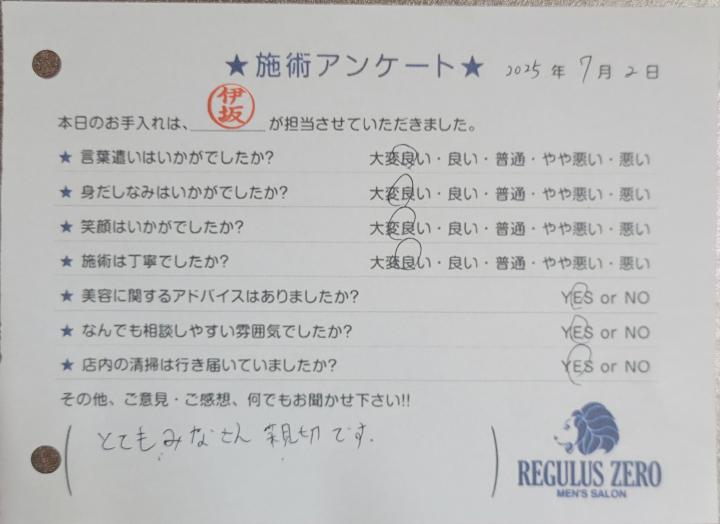 ★施術アンケート★ 2025年 7月 2日
本日のお手入れは、伊坂が担当させていただきました。
★ 言葉遣いはいかがでしたか? 大変良い・良い・普通・やや悪い・悪い
★ 身だしなみはいかがでしたか? 大変良い・良い・普通・やや悪い・悪い
★ 笑顔はいかがでしたか? 大変良い・良い・普通・やや悪い・悪い
★ 施術は丁寧でしたか? 大変良い・良い・普通・やや悪い・悪い
★ 美容に関するアドバイスはありましたか? YES or NO
★ なんでも相談しやすい雰囲気でしたか? YES or NO
★ 店内の清掃は行き届いていましたか? YES or NO
その他、ご意見・ご感想、何でもお聞かせ下さい!!
(とてもみなさん親切です.)
REGULUS ZERO
MEN'S SALON